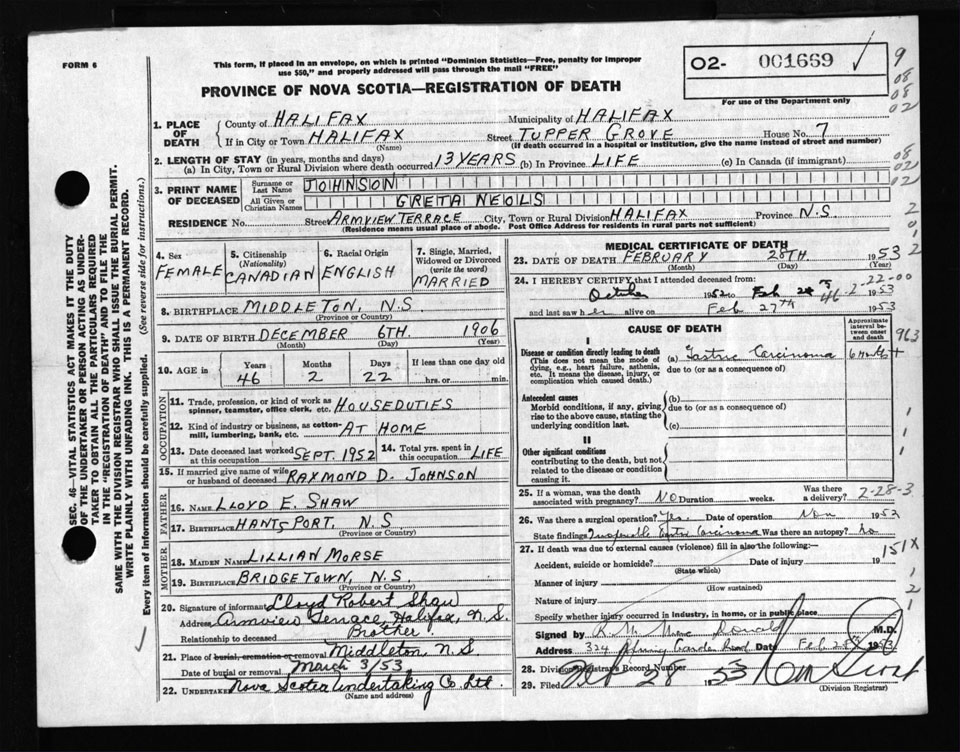 FORM 6
This form, if placed in an envelope, on which is printed "Dominion Statistics—Free, penalty for improper
use $50," and properly addressed will pass through the mail "FREE"
O2- 001669
For use of the Department only
PROVINCE OF NOVA SCOTIA—REGISTRATION OF DEATH
9
08
08
02
1. PLACE OF DEATH
County of HALIFAX Municipality of HALIFAX
If in City or Town HALIFAX Street TUPPER GROVE House No. 7
(Name) (If death occurred in a hospital or institution, give the name instead of street and number)
2. LENGTH OF STAY (in years, months and days)
(a) In City, Town or Rural Division where death occurred 13 YEARS (b) In Province LIFE (c) In Canada (if immigrant)
08
02
3. PRINT NAME OF DECEASED
Surname or Last Name JOHNSON
All Given or Christian Names GRETA NEOLS
RESIDENCE No. Street ARMVIEW TERRACE City, Town or Rural Division HALIFAX Province N.S.
(Residence means usual place of abode. Post Office Address for residents in rural parts not sufficient)
SEC. 46—VITAL STATISTICS ACT MAKES IT THE DUTY
OF THE UNDERTAKER OR PERSON ACTING AS UNDER-
TAKER TO OBTAIN ALL THE PARTICULARS REQUIRED
IN THE "REGISTRATION OF DEATH" AND TO FILE THE
SAME WITH THE DIVISION REGISTRAR WHO SHALL ISSUE THE BURIAL PERMIT.
WRITE PLAINLY WITH UNFADING INK. THIS IS A PERMANENT RECORD.
Every item of information should be carefully supplied. (See reverse side for instructions.)
4. Sex FEMALE
5. Citizenship (Nationality) CANADIAN
6. Racial Origin ENGLISH
7. Single, Married, Widowed or Divorced (write the word) MARRIED
8. BIRTHPLACE MIDDLETON, N.S.
(Province or Country)
9. DATE OF BIRTH DECEMBER 6TH. 1906
(Month) (Day) (Year)
10. AGE in Years Months Days If less than one day old
46 2 22 hrs. or min.
OCCUPATION
11. Trade, profession, or kind of work as
spinner, teamster, office clerk, etc. HOUSEDUTIES
12. Kind of industry or business, as cotton-
mill, lumbering, bank, etc. AT HOME
13. Date deceased last worked at this occupation SEPT. 1952 14. Total yrs. spent in this occupation LIFE
15. If married give name of wife
or husband of deceased RAYMOND D. JOHNSON
FATHER
16. NAME LLOYD E. SHAW
17. BIRTHPLACE HANTSPORT, N.S.
(Province or Country)
MOTHER
18. MAIDEN NAME LILLIAN MORSE
19. BIRTHPLACE BRIDGETOWN, N.S.
(Province or Country)
20. Signature of informant Lloyd Robert Shaw
Address Armview Terrace, Halifax, N.S.
Relationship to deceased Brother
21. Place of burial, cremation or removal Middleton, N.S.
Date of burial or removal March 3/53
22. Undertaker Nova Scotia Undertaking Co. Ltd.
(Name and address)
MEDICAL CERTIFICATE OF DEATH
23. DATE OF DEATH FEBRUARY 28TH. 1953
(Month) (Day) (Year)
24. I HEREBY CERTIFY that I attended deceased from:
October 1952 to Feb 28 1953
46-2-22-00
and last saw her alive on Feb 27th 1953
CAUSE OF DEATH
Approximate interval between onset and death
I
Disease or condition directly leading to death (a) Gastric Carcinoma 6 months +
(This does not mean the mode of
dying, e.g., heart failure, asthenia,
etc. It means the disease, injury, or
complication which caused death.)
due to (or as a consequence of)
Antecedent causes (b)
Morbid conditions, if any, giving
rise to the above cause, stating the
underlying condition last.
due to (or as a consequence of)
(c)
II
Other significant conditions
contributing to the death, but not
related to the disease or condition
causing it.
25. If a woman, was the death
associated with pregnancy? NO Duration weeks. Was there a delivery? 2-28-3
26. Was there a surgical operation? Yes. Date of operation Nov 1952
State findings Inoperable Gastric Carcinoma Was there an autopsy? No
27. If death was due to external causes (violence) fill in also the following:—
151X
Accident, suicide or homicide? Date of injury 19
(State which)
Manner of injury
(How sustained)
Nature of injury
Specify whether injury occurred in industry, in home, or in public place
Signed by M.D.
Address 324 Road Date Feb 28 1953
28. Division Registrar's Record Number
29. Filed 28 1953
(Division Registrar)